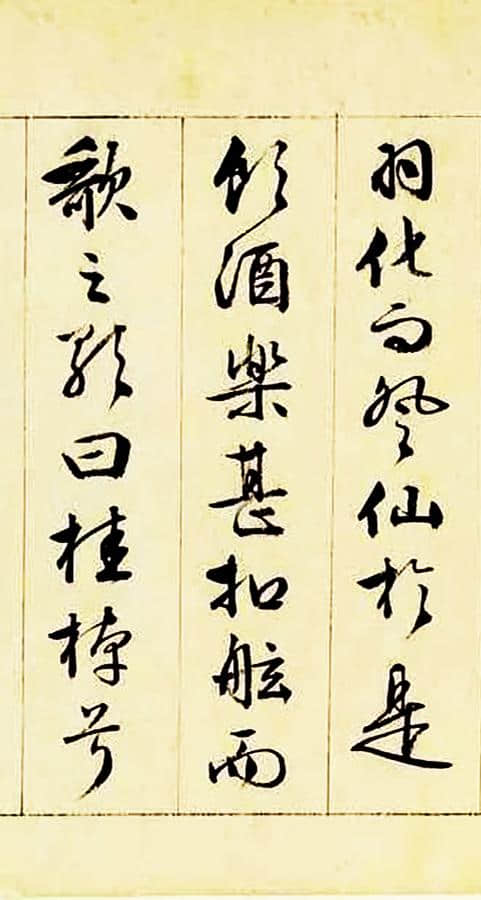 羽化而登仙於是
飲酒樂甚扣舷而
歌之歌曰桂棹兮